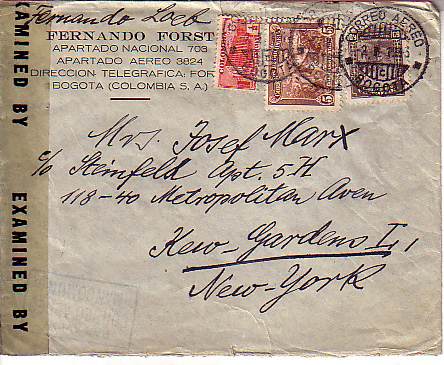 Fernando Loeb
FERNANDO FORST
APARTADO NACIONAL 703
APARTADO AEREO 3824
DIRECCION TELEGRAFICA: FOR
BOGOTA (COLOMBIA S. A.)
CORREO AEREO
BOGOTA
Mrs. Josef Marx
c/o Steinfeld Apt. 5-H
118-40 Metropolitan Aven
Kew-Gardens L.I.
New-York
EXAMINED BY
EXAMINED BY